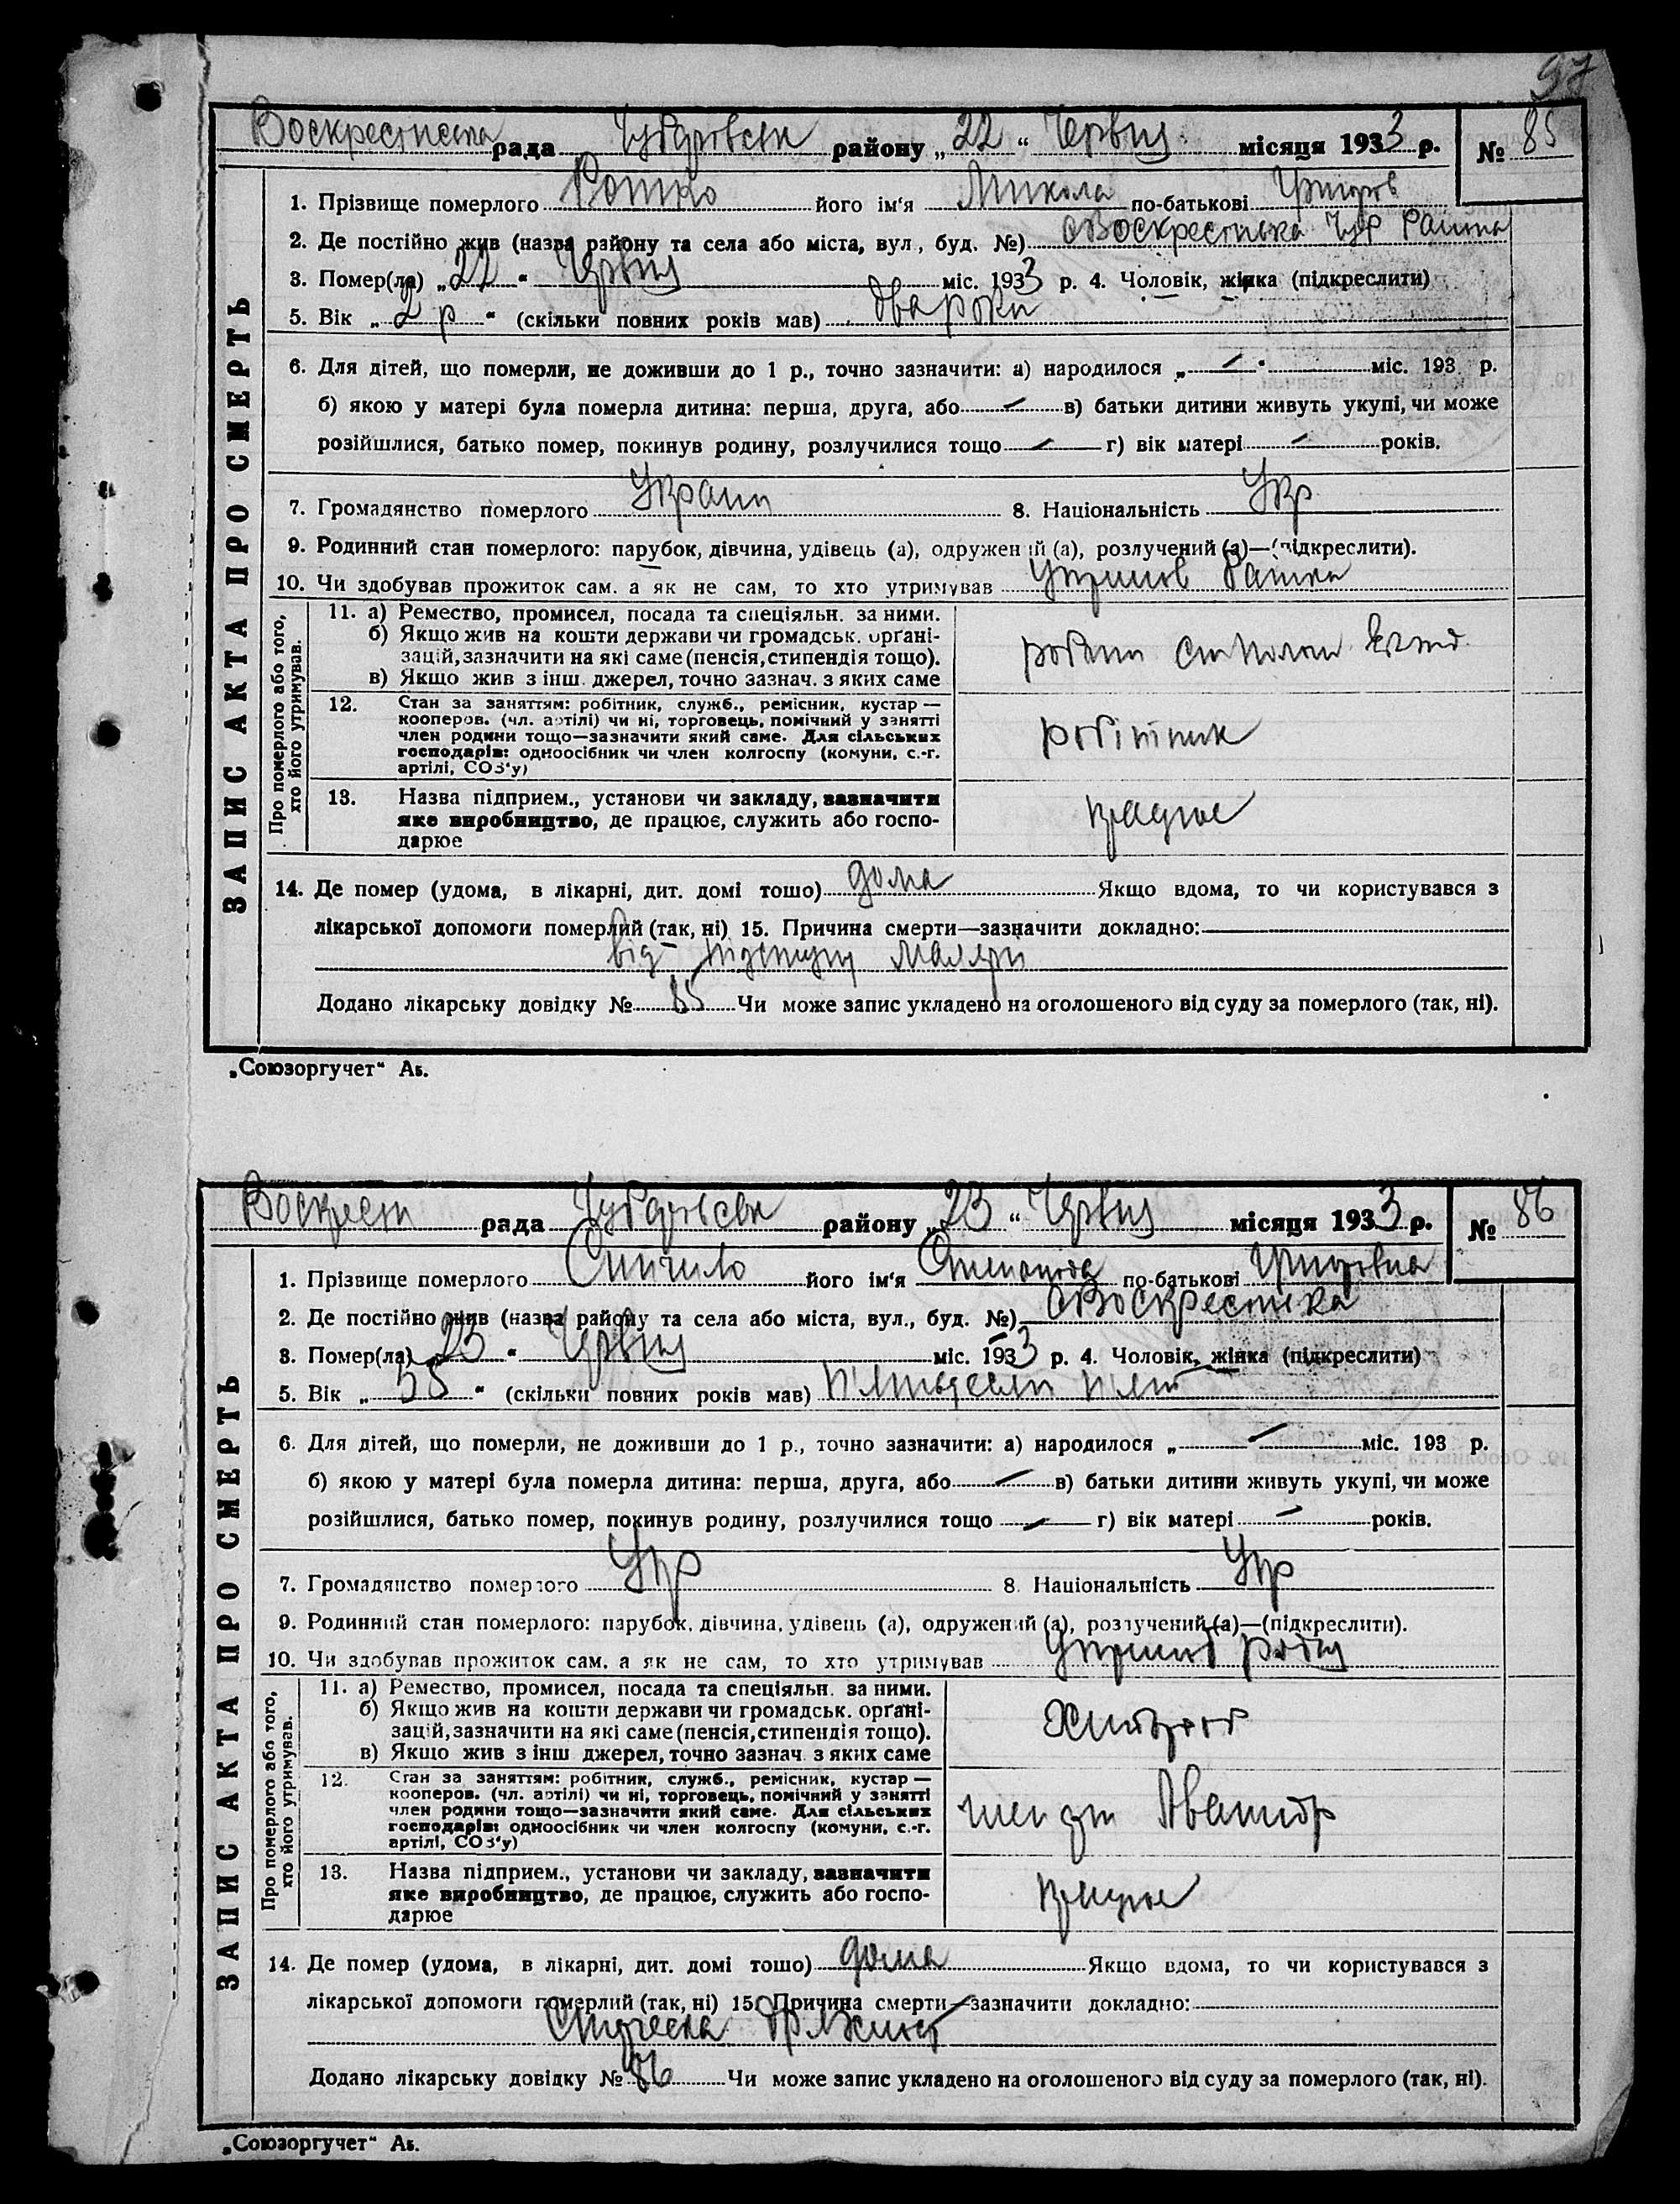 97
Воскресенська рада Чубарівськ району „22“ Червня місяця 1933 р. № 85
ЗАПИС АКТА ПРО СМЕРТЬ
1. Прізвище померлого його ім‘я Микола по-батькові
2. Де постійно жив (назва району та села або міста, вул., буд. №)
3. Помер(ла) „22“ Червня міс. 1933 р. 4. Чоловік, жінка (підкреслити)
5. Вік „2 р“ (скільки повних років мав) два роки
6. Для дітей, що померли, не доживши до 1 р., точно зазначити: а) народилося „ “ міс. 193 р.
б) якою у матері була померла дитина: перша, друга, або в) батьки дитини живуть укупі, чи може
розійшлися, батько помер, покинув родину, розлучилися тощо г) вік матері років.
7. Громадянство померлого 8. Національність Укр
9. Родинний стан померлого: парубок, дівчина, удівець (а), одружений (а), розлучений (а)—(підкреслити).
10. Чи здобував прожиток сам. а як не сам, то хто утримував
Про померлого або того,
хто його утримував.
11. а) Ремество, промисел, посада та спеціяльн. за ними.
б) Якщо жив на кошти держави чи громадськ. органі-
зацій, зазначити на які саме (пенсія, стипендія тощо).
в) Якщо жив з інш. джерел, точно зазнач. з яких саме
12. Стан за заняттям: робітник, служб., ремісник, кустар —
кооперов. (чл. артілі) чи ні, торговець, помічний у занятті
член родини тощо—зазначити який саме. Для сільських
господарів: одноосібник чи член колгоспу (комуни, с.-г.
артілі, СОЗ‘у)
робітник
13. Назва підприєм., установи чи закладу, зазначити
яке виробництво, де працює, служить або госпо-
дарює
14. Де помер (удома, в лікарні, дит. домі тошо) дома Якщо вдома, то чи користувався з
лікарської допомоги померлий (так, ні) 15. Причина смерти—зазначити докладно:
від Малярії
Додано лікарську довідку № 85 Чи може запис укладено на оголошеного від суду за померлого (так, ні).
„Союзоргучет“ Аб.
Воскресен рада Чубарівськ району „23“ Червня місяця 1933 р. № 86
ЗАПИС АКТА ПРО СМЕРТЬ
1. Прізвище померлого його ім‘я по-батькові
2. Де постійно жив (назва району та села або міста, вул., буд. №)
3. Помер(ла) „23“ Червня міс. 1933 р. 4. Чоловік, жінка (підкреслити)
5. Вік „55“ (скільки повних років мав)
6. Для дітей, що померли, не доживши до 1 р., точно зазначити: а) народилося „ “ міс. 193 р.
б) якою у матері була померла дитина: перша, друга, або в) батьки дитини живуть укупі, чи може
розійшлися, батько помер, покинув родину, розлучилися тощо г) вік матері років.
7. Громадянство померлого Укр 8. Національність Укр
9. Родинний стан померлого: парубок, дівчина, удівець (а), одружений (а), розлучений (а)—(підкреслити).
10. Чи здобував прожиток сам. а як не сам, то хто утримував
Про померлого або того,
хто його утримував.
11. а) Ремество, промисел, посада та спеціяльн. за ними.
б) Якщо жив на кошти держави чи громадськ. органі-
зацій, зазначити на які саме (пенсія, стипендія тощо).
в) Якщо жив з інш джерел, точно зазнач. з яких саме
12. Стан за заняттям: робітник, служб., ремісник, кустар —
кооперов. (чл. артілі) чи ні, торговець, помічний у занятті
член родини тощо—зазначити який саме. Для сільських
господарів: одноосібник чи член колгоспу (комуни, с.-г.
артілі, СОЗ‘у)
13. Назва підприєм., установи чи закладу, зазначити
яке виробництво, де працює, служить або госпо-
дарює
14. Де помер (удома, в лікарні, дит. домі тошо) дома Якщо вдома, то чи користувався з
лікарської допомоги померлий (так, ні) 15. Причина смерти—зазначити докладно:
Додано лікарську довідку № 86 Чи може запис укладено на оголошеного від суду за померлого (так, ні).
„Союзоргучет“ Аб.